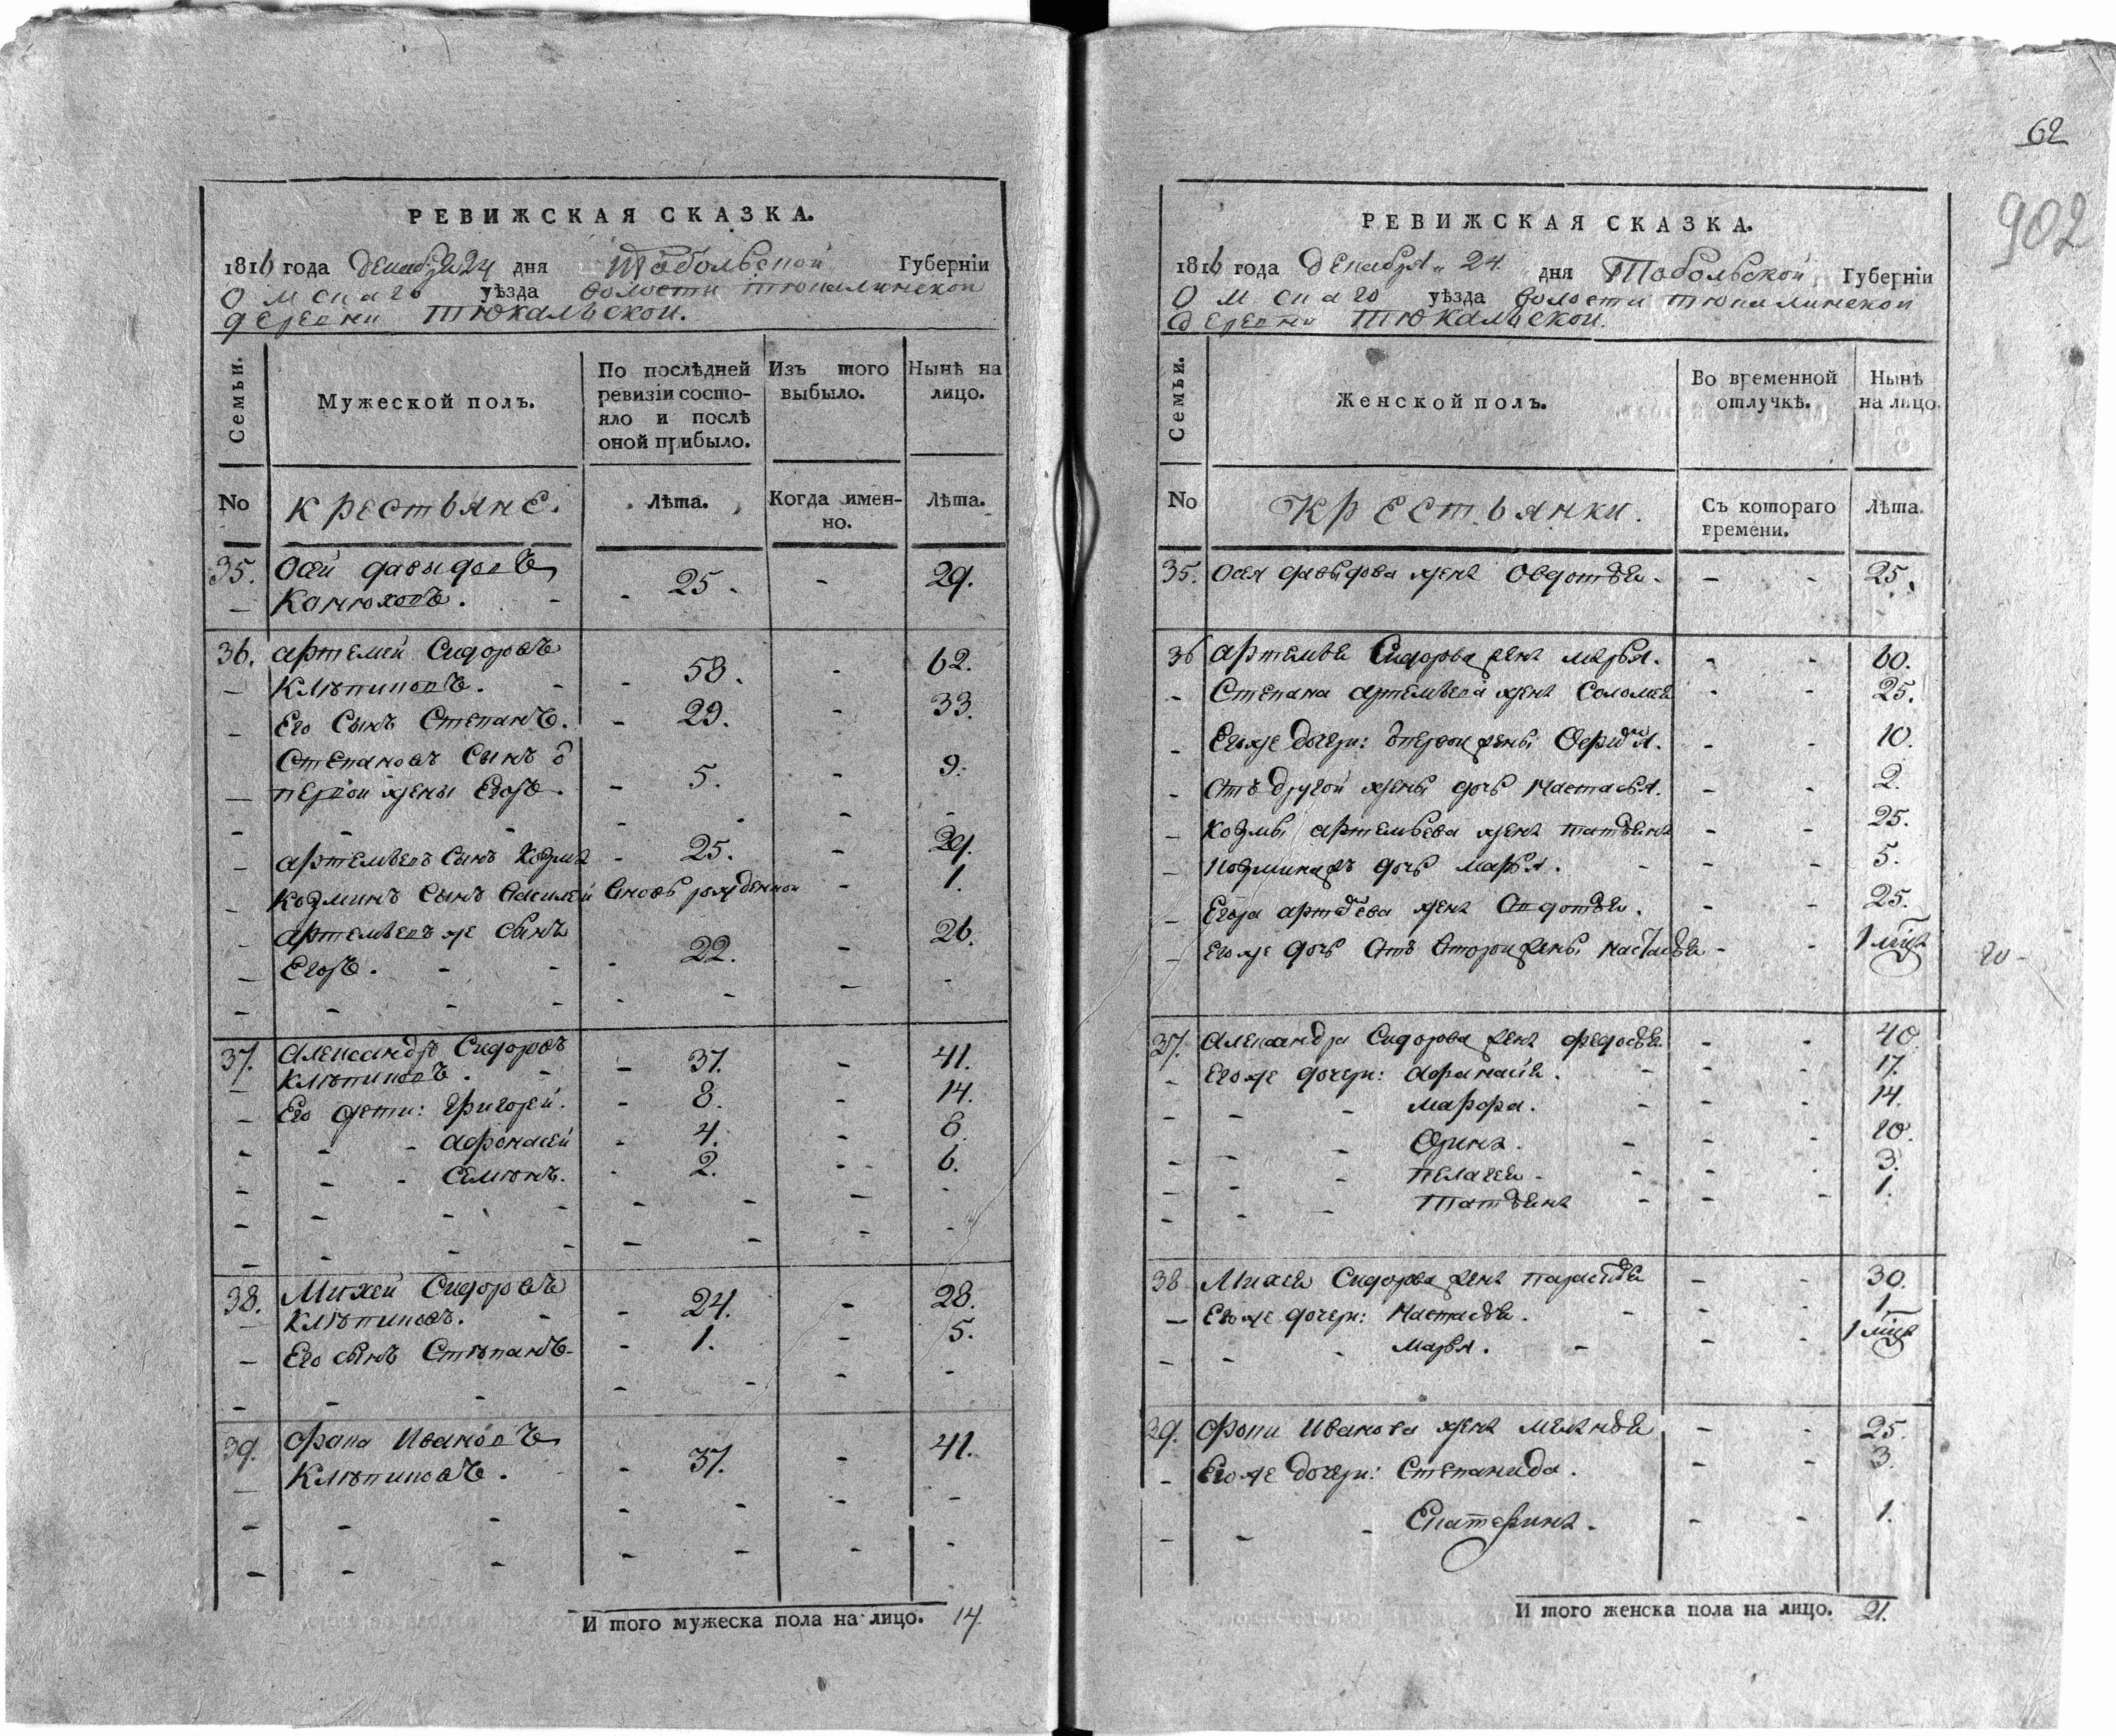 РЕВИЖСКАЯ СКАЗКА.
1816 года декабря 24 дня Тобольской Губернїи
Омскаго уѣзда волости тюкалинской
деревни тюкальской.
Семьи.
Мужеской полъ.
По послѣдней ревизїи состояло и послѣ оной прибыло.
Изъ того выбыло.
Нынѣ на лицо.
No
крестьяне.
Лѣта.
Когда именно.
Лѣта.
35. Осей давыдовъ - 25. - 29.
- Конюховъ. -
36. артемей Сидоровъ - 58. - 62.
- Клюпиновъ. -
- Его Сынъ Степанъ. - 29. - 33.
Степановъ Сынъ о
- первой жены Егоръ. - 5. - 9.
- артемьевъ Сынъ Козма - 25. - 29.
- Козминъ Сынъ Василей вновь рожденной - 1.
- артемьевъ же Сынъ
- Егоръ. - 22. - 26.
37. Александръ Сидоровъ - 37. - 41.
- Клюпиновъ. -
- Его дети: Григорей. - 8. - 14.
- - - афонасей - 4. - 8.
- - - Семионъ. - 2. - - 6.
38. Михей Сидоровъ - 24. - 28.
- Клюпиновъ. -
- Его сынъ Степанъ - 1. - 5.
39. Фока Ивановъ - 37. - 41.
- Клюпиновъ.
И того мужеска пола на лицо. 14
62
902
РЕВИЖСКАЯ СКАЗКА.
1816 года декабря 24. дня Тобольской Губернїи
Омскаго уѣзда волости тюкалинской
деревни тюкальской.
Семьи.
Женской полъ.
Во временной отлучкѣ.
Нынѣ на лицо
No
Крестьянки.
Съ котораго времени.
Лѣта.
35. Осея давыдова жена Овдотья - - - 25.
36 артемья Сидорова жена марья. - - 60.
- Степана артемьева жена Соломея - - 25.
- Егоже дочери: - - 10.
- Отъ другой жены дочь Настасья. - - 2.
- Козмы артемьева жена татьяна - - 25.
- Козмина дочь марья. - - - 5.
- Егора артемьева жена Овдотья. - - 25.
- Егоже дочь Отъ второй жены настасья - - 1 мѣсяц
20 -
37. Александра Сидорова жена федосья. - - 40.
- Егоже дочери: афанасия. - - - 17.
- - - Марфа. - - - 14.
- - - Орина. - - - 10.
- - - Пелагея - - - - 3.
- - - Татьяна - - - 1.
38 Михея Сидорова жена парасковья - - 30.
- Егоже дочери: Настасья. - - - 1.
- - - Марья. - - - 1 мѣсяц
39. Фоки Иванова жена меланья - - 25.
- Егоже дочери: Степанида. - - 3.
- - - Екатерина. - - 1.
И того женска пола на лицо. 21.